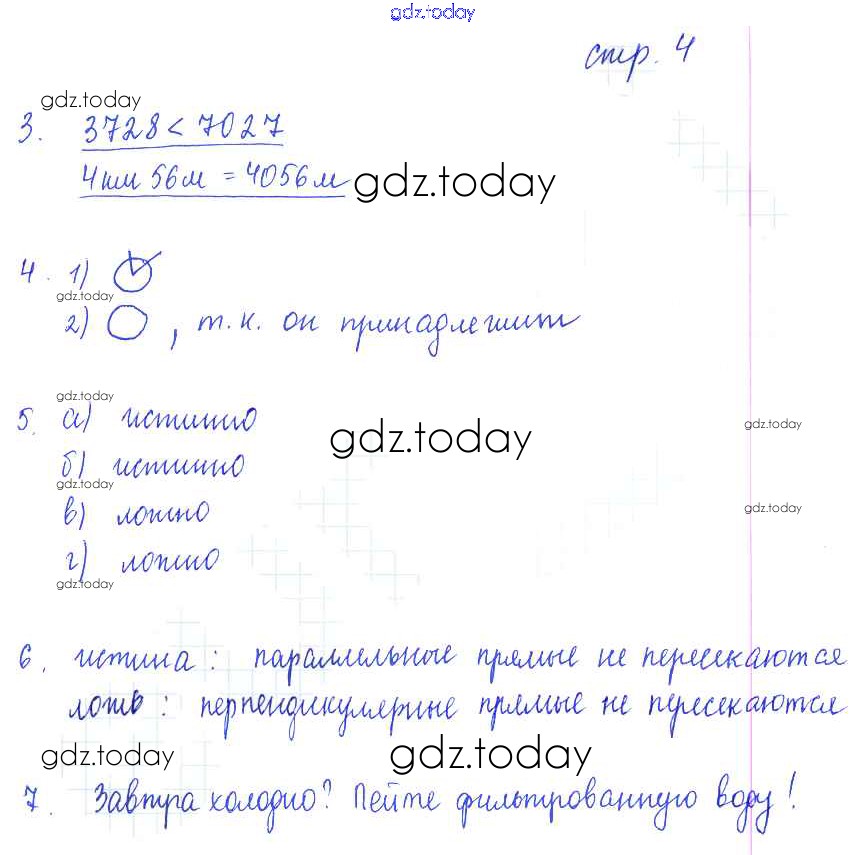 gdz.today
стр. 4
gdz.today
3. 3728 < 7027
4 км 56 м = 4056 м gdz.today
4. 1)
gdz.today
2) , т.к. он принадлежит
gdz.today
5. а) истинно
gdz.today
gdz.today
б) истинно
gdz.today
в) ложно
gdz.today
г) ложно
gdz.today
6. истина: параллельные прямые не пересекаются
ложь: перпендикулярные прямые не пересекаются
gdz.today gdz.today
7. Завтра холодно? Пейте фильтрованную воду!